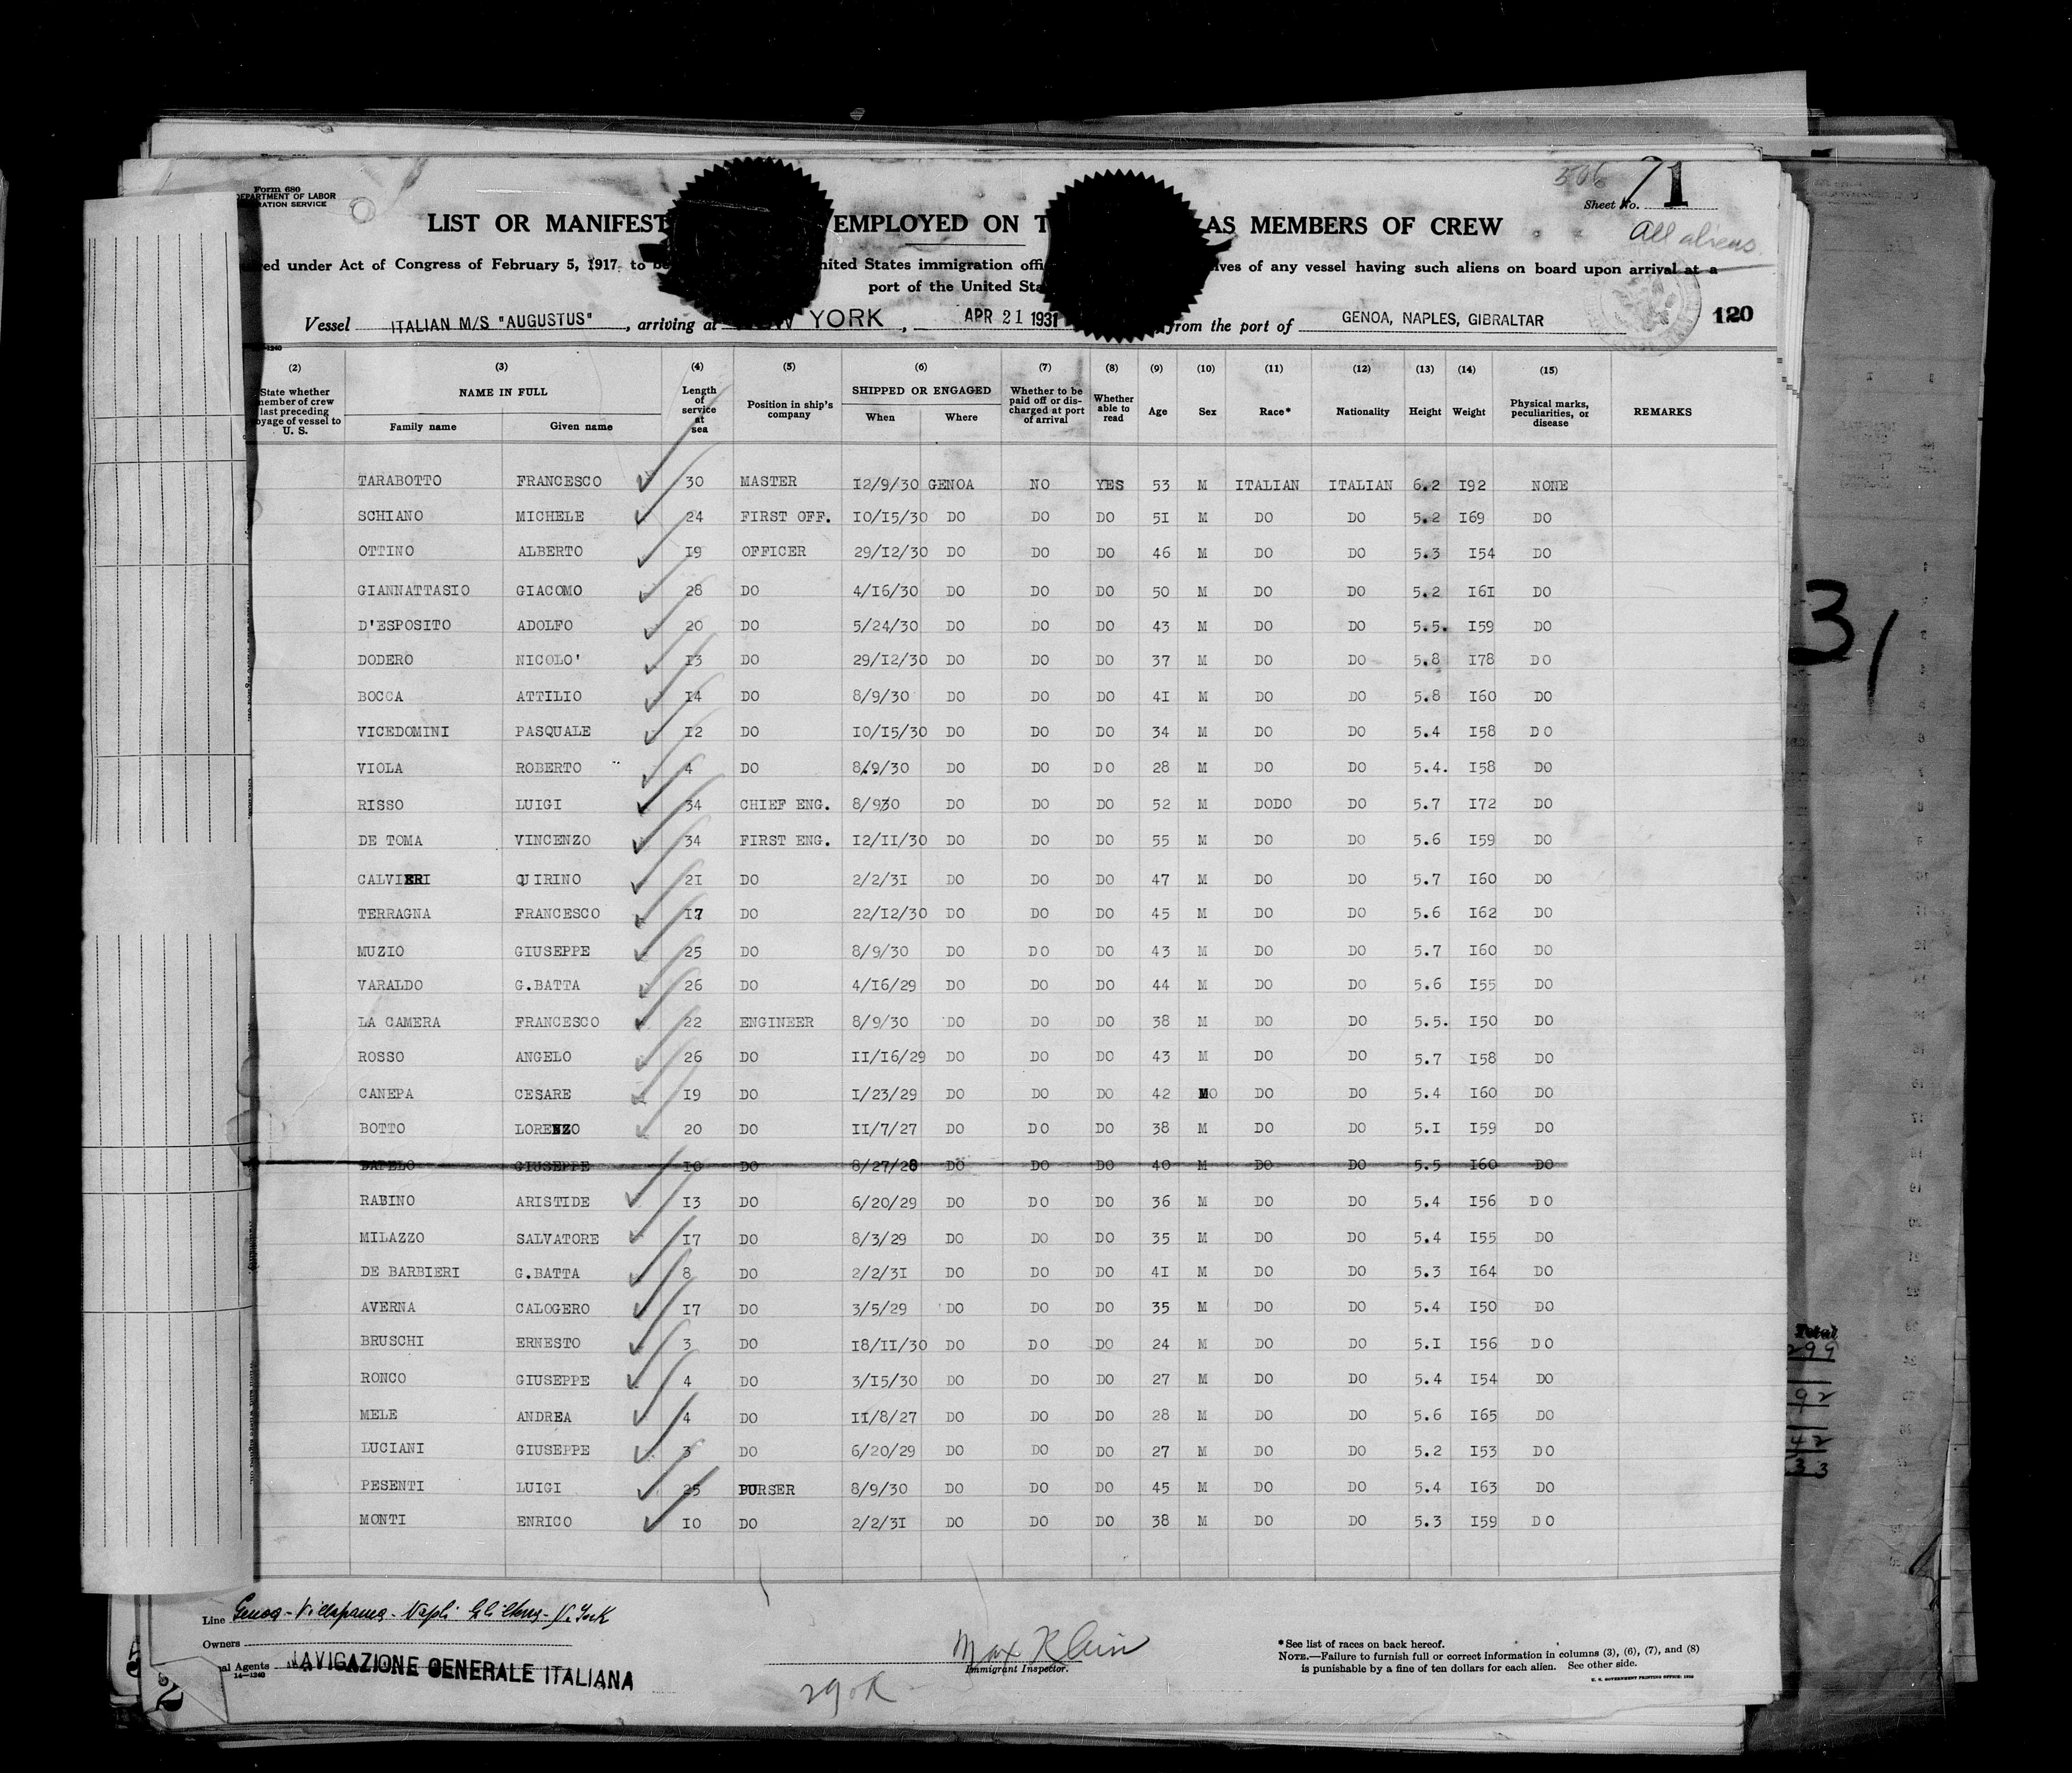 Form 680
DEPARTMENT OF LABOR
RATION SERVICE
506
Sheet No. 71
All aliens
LIST OR MANIFEST EMPLOYED ON T AS MEMBERS OF CREW
red under Act of Congress of February 5, 1917, to be nited States immigration offi ves of any vessel having such aliens on board upon arrival at a
port of the United Sta
Vessel ITALIAN M/S "AUGUSTUS", arriving at NEW YORK, APR 21 1931 from the port of GENOA, NAPLES, GIBRALTAR 120
(2) (3) (4) (5) (6) (7) (8) (9) (10) (11) (12) (13) (14) (15)
State whether member of crew last preceding voyage of vessel to U. S. NAME IN FULL Family name Given name Length of service at sea Position in ship's company SHIPPED OR ENGAGED When Where Whether to be paid off or discharged at port of arrival Whether able to read Age Sex Race* Nationality Height Weight Physical marks, peculiarities, or disease REMARKS
TARABOTTO FRANCESCO 30 MASTER I2/9/30 GENOA NO YES 53 M ITALIAN ITALIAN 6.2 I92 NONE
SCHIANO MICHELE 24 FIRST OFF. IO/I5/30 DO DO DO 5I M DO DO 5.2 I69 DO
OTTINO ALBERTO I9 OFFICER 29/I2/30 DO DO DO 46 M DO DO 5.3 I54 DO
GIANNATTASIO GIACOMO 28 DO 4/I6/30 DO DO DO 50 M DO DO 5.2 I6I DO
D'ESPOSITO ADOLFO 20 DO 5/24/30 DO DO DO 43 M DO DO 5.5. I59 DO
DODERO NICOLO' I3 DO 29/I2/30 DO DO DO 37 M DO DO 5.8 I78 DO
BOCCA ATTILIO I4 DO 8/9/30 DO DO DO 4I M DO DO 5.8 I60 DO
VICEDOMINI PASQUALE I2 DO IO/I5/30 DO DO DO 34 M DO DO 5.4 I58 DO
VIOLA ROBERTO 4 DO 8/9/30 DO DO DO 28 M DO DO 5.4. I58 DO
RISSO LUIGI 34 CHIEF ENG. 8/930 DO DO DO 52 M DODO DO 5.7 I72 DO
DE TOMA VINCENZO 34 FIRST ENG. I2/II/30 DO DO DO 55 M DO DO 5.6 I59 DO
CALVIERI QUIRINO 2I DO 2/2/3I DO DO DO 47 M DO DO 5.7 I60 DO
TERRAGNA FRANCESCO I7 DO 22/I2/30 DO DO DO 45 M DO DO 5.6 I62 DO
MUZIO GIUSEPPE 25 DO 8/9/30 DO DO DO 43 M DO DO 5.7 I60 DO
VARALDO G.BATTA 26 DO 4/I6/29 DO DO DO 44 M DO DO 5.6 I55 DO
LA CAMERA FRANCESCO 22 ENGINEER 8/9/30 DO DO DO 38 M DO DO 5.5. I50 DO
ROSSO ANGELO 26 DO II/I6/29 DO DO DO 43 M DO DO 5.7 I58 DO
CANEPA CESARE I9 DO I/23/29 DO DO DO 42 MO DO DO 5.4 I60 DO
BOTTO LORENZO 20 DO II/7/27 DO DO DO 38 M DO DO 5.I I59 DO
GIUSEPPE DO 8/27/28 DO DO DO 40 M DO DO 5.5 I60 DO
RABINO ARISTIDE I3 DO 6/20/29 DO DO DO 36 M DO DO 5.4 I56 DO
MILAZZO SALVATORE I7 DO 8/3/29 DO DO DO 35 M DO DO 5.4 I55 DO
DE BARBIERI G.BATTA 8 DO 2/2/3I DO DO DO 4I M DO DO 5.3 I64 DO
AVERNA CALOGERO I7 DO 3/5/29 DO DO DO 35 M DO DO 5.4 I50 DO
BRUSCHI ERNESTO 3 DO I8/II/30 DO DO DO 24 M DO DO 5.I I56 DO
RONCO GIUSEPPE 4 DO 3/I5/30 DO DO DO 27 M DO DO 5.4 I54 DO
MELE ANDREA 4 DO II/8/27 DO DO DO 28 M DO DO 5.6 I65 DO
LUCIANI GIUSEPPE 3 DO 6/20/29 DO DO DO 27 M DO DO 5.2 I53 DO
PESENTI LUIGI 25 PURSER 8/9/30 DO DO DO 45 M DO DO 5.4 I63 DO
MONTI ENRICO IO DO 2/2/3I DO DO DO 38 M DO DO 5.3 I59 DO
Line Genoa - Villafranca - Napoli Gibilterra - N. York
Owners
al Agents NAVIGAZIONE GENERALE ITALIANA
14-1240
Max Klein
Immigrant Inspector.
29 ok
*See list of races on back hereof.
NOTE.—Failure to furnish full or correct information in columns (3), (6), (7), and (8)
is punishable by a fine of ten dollars for each alien. See other side.
U. S. GOVERNMENT PRINTING OFFICE: 1930
31
Total
299
92
42
33